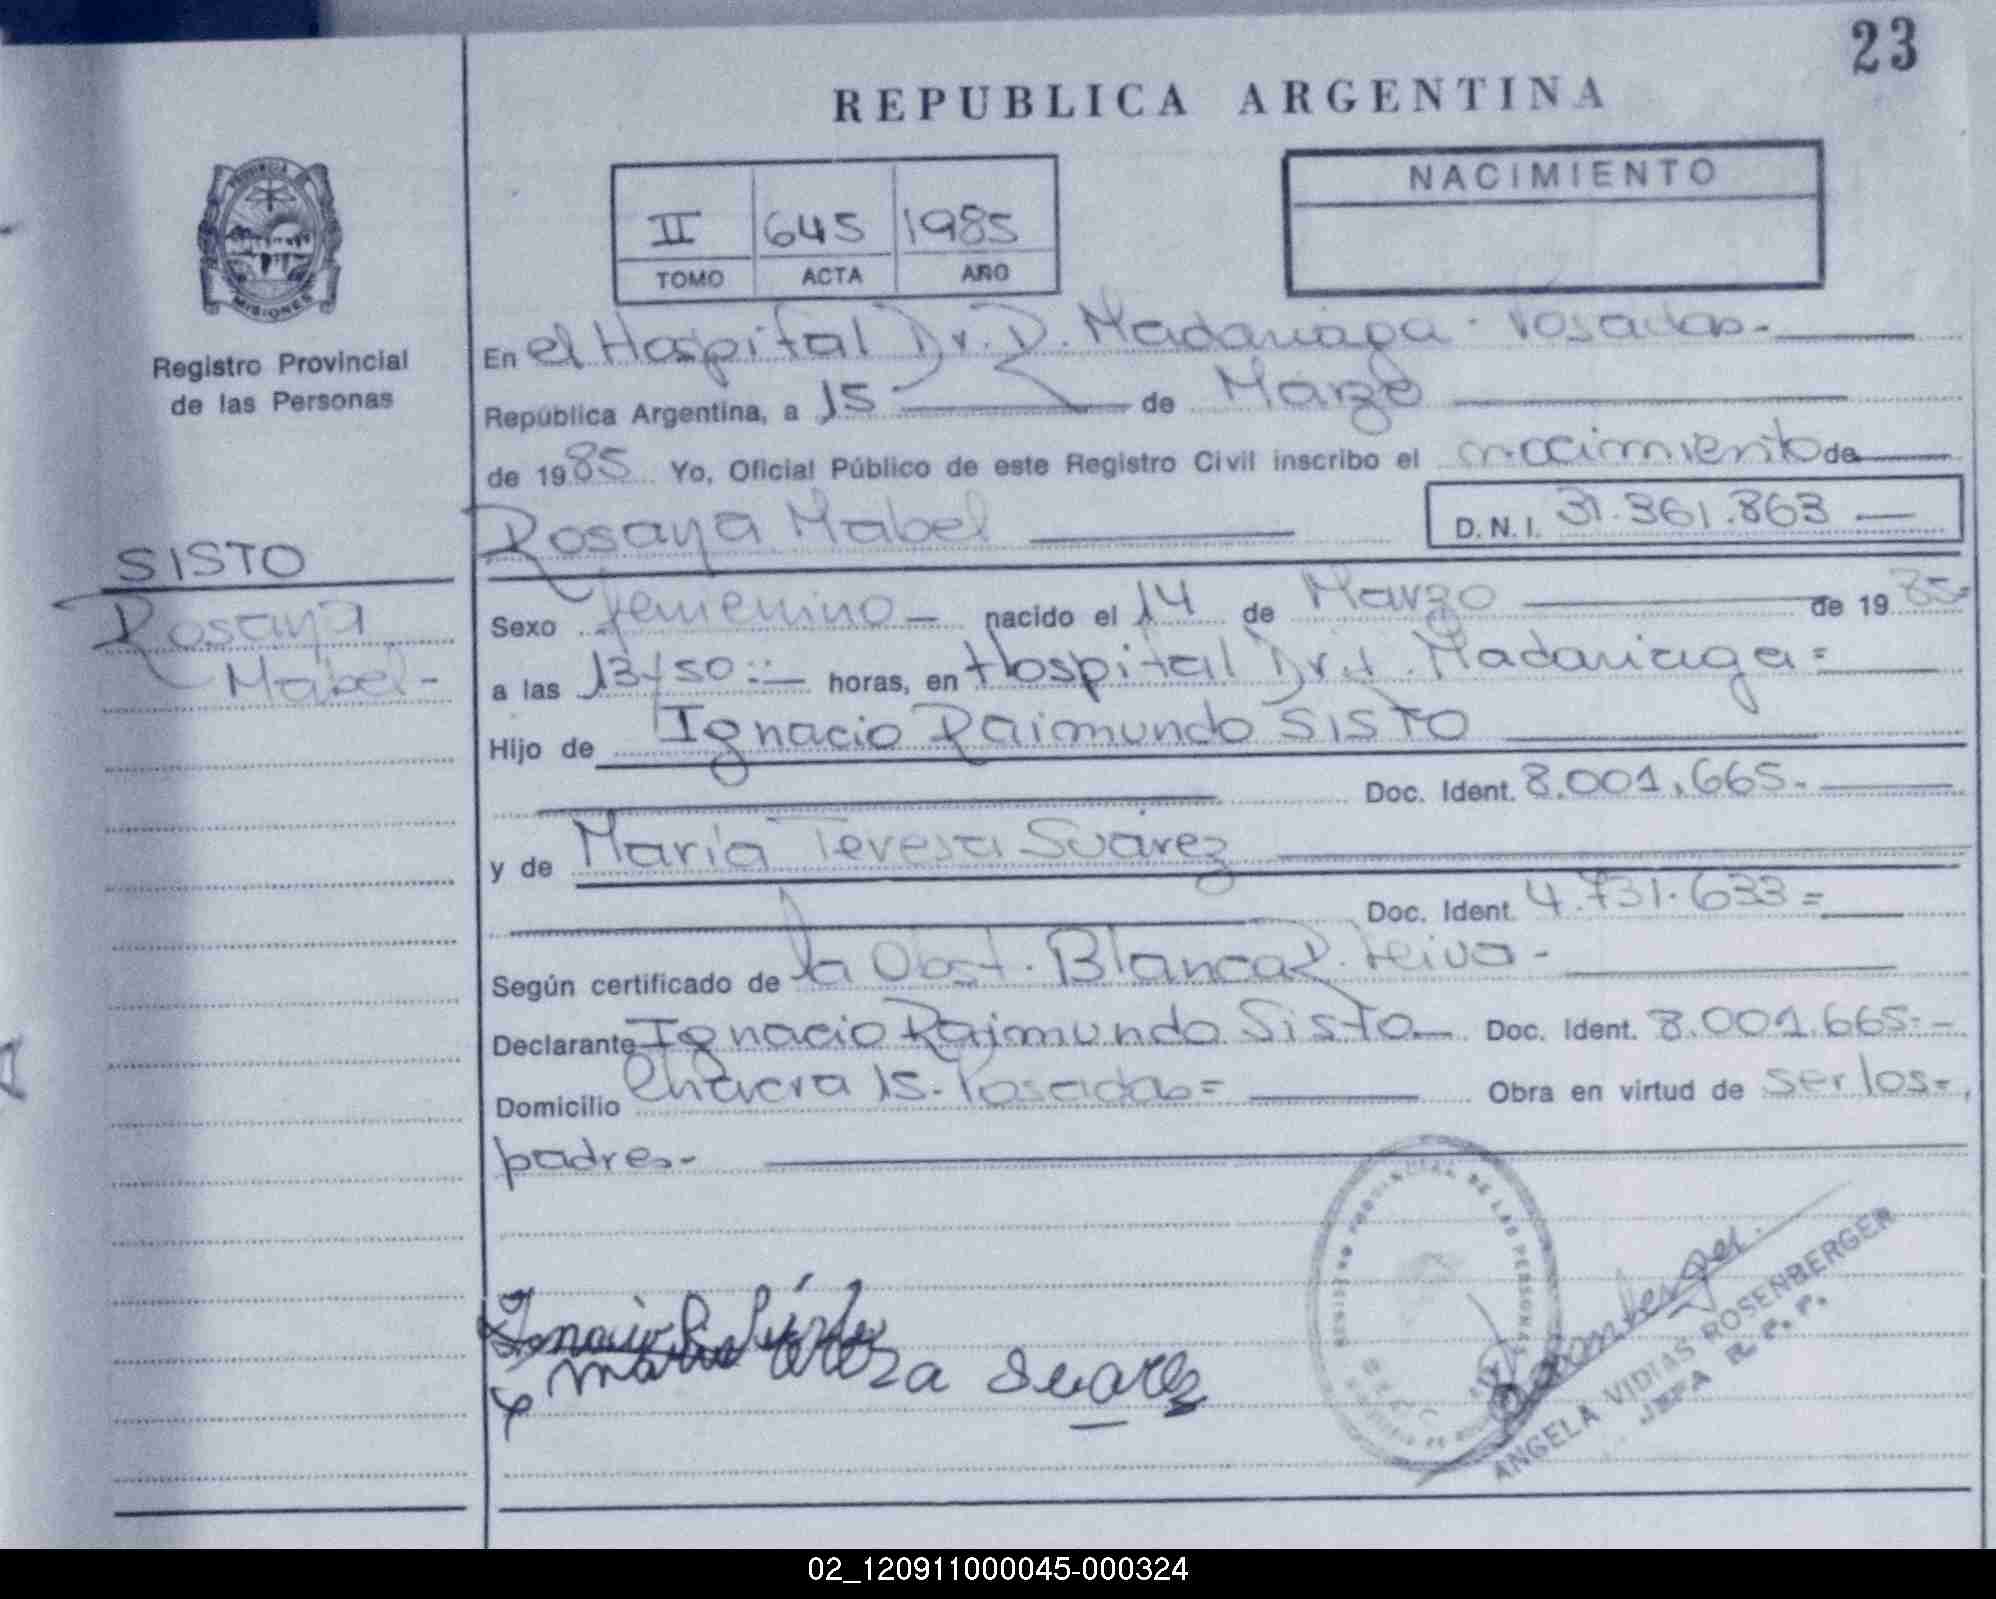 23
REPUBLICA ARGENTINA
PROVINCIA DE
MISIONES
Registro Provincial
de las Personas
II 645 1985
TOMO ACTA AÑO
NACIMIENTO
En el Hospital Dr. R. Madariaga - Posadas.-
República Argentina, a 15 de Marzo
de 1985 Yo, Oficial Público de este Registro Civil inscribo el nacimiento de
Rosaya Mabel
D. N. I. 31.361.863
SISTO
Rosaya
Mabel-
Sexo femenino nacido el 14 de Marzo de 1985=
a las 13/50 horas, en Hospital Dr. R. Madariaga=
Hijo de Ignacio Raimundo SISTO
Doc. Ident. 8.001.665-
y de María Teresa Suárez
Doc. Ident. 4.731.633=
Según certificado de la Obst. Blanca R. Leiva-
Declarante Ignacio Raimundo Sisto Doc. Ident. 8.001.665-
Domicilio Chacra 15. Posadas= Obra en virtud de ser los=
padres-
maria tereza Suarez
REGISTRO PROVINCIAL DE LAS PERSONAS
ANGELA VIDIAS ROSENBERGER
JEFA R. P. P.
02_120911000045-000324